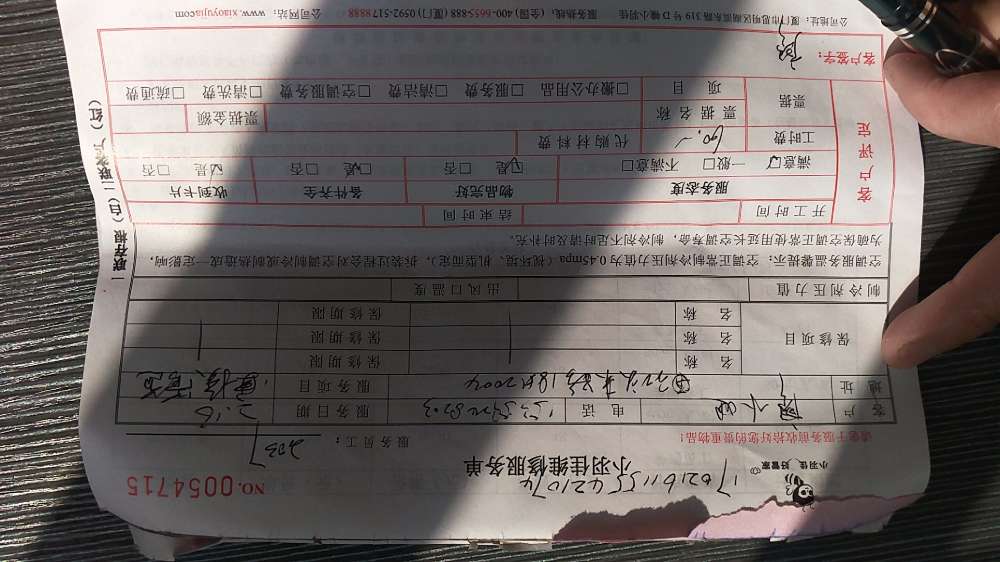 小羽佳 好管家
1702161155421074
小羽佳维修服务单
NO.0054715
请您于服务前收拾好您的贵重物品!
服务员工: 2037
客户
电话
服务日期 2.16
地址
服务项目
保修项目
名称
保修期限
名称
保修期限
名称
保修期限
制冷剂压力值
出风口温度
空调服务温馨提示:空调正常制冷剂压力值为0.45mpa(视环境、机型而定),拆装过程会对空调制冷或制热造成一定影响,
为确保空调正常使用延长空调寿命,制冷剂不足时请及时补充。
客户评定
开工时间
结束时间
服务态度
物品完好
备件齐全
收到卡片
☑满意 □一般 □不满意
☑是 □否
☑是 □否
☑是 □否
工时费 60.
代购材料费
票据
票据名称
票据金额
项目
□搬办公用品 □服务费 □清洁费 □空调服务费 □清洗费 □疏通费
客户签字:
公司地址:厦门市思明区湖滨东路319号D幢 小羽佳
服务热线:(全国)400-6655-888 (厦门)0592-517 8888
公司网站:www.xiaoyujia.com
一联存根(白)二联客户(红)